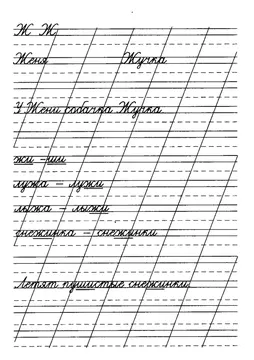 Ж Ж
Женя Жучка
У Жени собачка Жучка.
жи - ши
лужа - лужи
лыжа - лыжи
снежинка - снежинки
Летят пушистые снежинки.